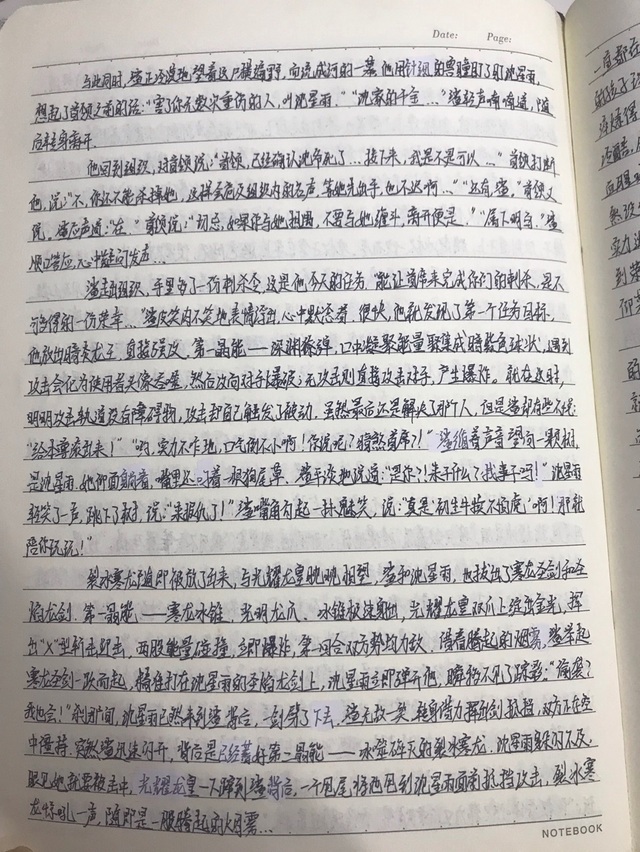 Date: Page:
与此同时，鲨正冷漠地望着这尸横遍野，血流成河的一幕，他用针织的雪瞳盯了盯沈星雨，
想起了首领之前的话：“害了你无数次重伤的人，叫沈星雨。”“沈家的千金…”鲨轻声喃喃道，随
后转身离开。
他回到组织，对首领说：“首领，已经确认沈命死了…接下来，我是不是可以…”首领打断
他，说：“不，你还不能杀掉她，这样会危及组织内的名声，等她先出手，也不迟啊…”“还有，鲨。”首领又
说。鲨应声道：“在。”首领说：“切忌，如果你与她扭曲，不要与她缠斗，离开便是。”“属下明白。”鲨
顺口答应，心中疑问发声…
鲨走出组织，手里多了一份刺杀令，这是他今天的任务，“能让首席来完成你们的刺杀，是不
可多得的一份荣幸…”鲨皮笑肉不笑地表情浮出，心中默念着，很快，他就发现了第一个任务目标。
他放出暗炎龙王，直接强攻。第一晶能——深渊弹，口中凝聚能量聚集成暗紫色球状，遇到
攻击会化为使用者头像吞噬，然后攻向对手爆破；无攻击则直接攻击对手，产生爆炸。就在这时，
明明攻击轨道没有障碍物，攻击却自己触发了被动，虽然最后还是解决了那个人，但是鲨却有些不悦：
“给本尊滚出来！”“哟，实力不咋地，口气倒不小啊！你说呢？首席？！”鲨循着声音望向一颗树，
是沈星雨，她仰面躺着，嘴里还叼着一根狗尾草，鲨平淡地说道：“是你？！来干什么？找事干吗！”沈星雨
轻笑了一声，跳下了树，说：“来报仇了！”鲨嘴角勾起一抹嗤笑，说：“真是‘初生牛犊不怕虎’啊！那就
陪你玩玩！”
裂冰寒龙随即被放了出来，与光耀龙皇晚晚相望，鲨和沈星雨，也拔出了寒龙圣剑和圣
焰龙剑。第一晶能——寒龙冰锥，光明龙爪。冰锥极速突出，光耀龙皇双爪上绽出金光，挥
出“X”型斩击迎击，两股能量碰撞，立即爆炸，第一回合双方势均力敌，借着腾起的烟雾，鲨举起
寒龙圣剑一跃而起，横砸打在沈星雨的圣焰龙剑上，沈星雨立即弹开他，瞬移不见了踪影：“偷袭？
我也会！”刹那间，沈星雨已然来到鲨背后，一剑劈了下去，鲨无故一笑，转身借力挥剑抵挡，双方在空
中僵持。突然鲨迅速闪开，背后是已经蓄好第二晶能——冰噬碎灭的裂冰寒龙，沈星雨躲闪不及，
眼见她就要被击中，光耀龙皇一下蹿到鲨背后，一个甩尾，将他甩到沈星雨面前抵挡攻击，裂冰寒
龙惊吼一声，随即是一股腾起的烟雾…
NOTEBOOK